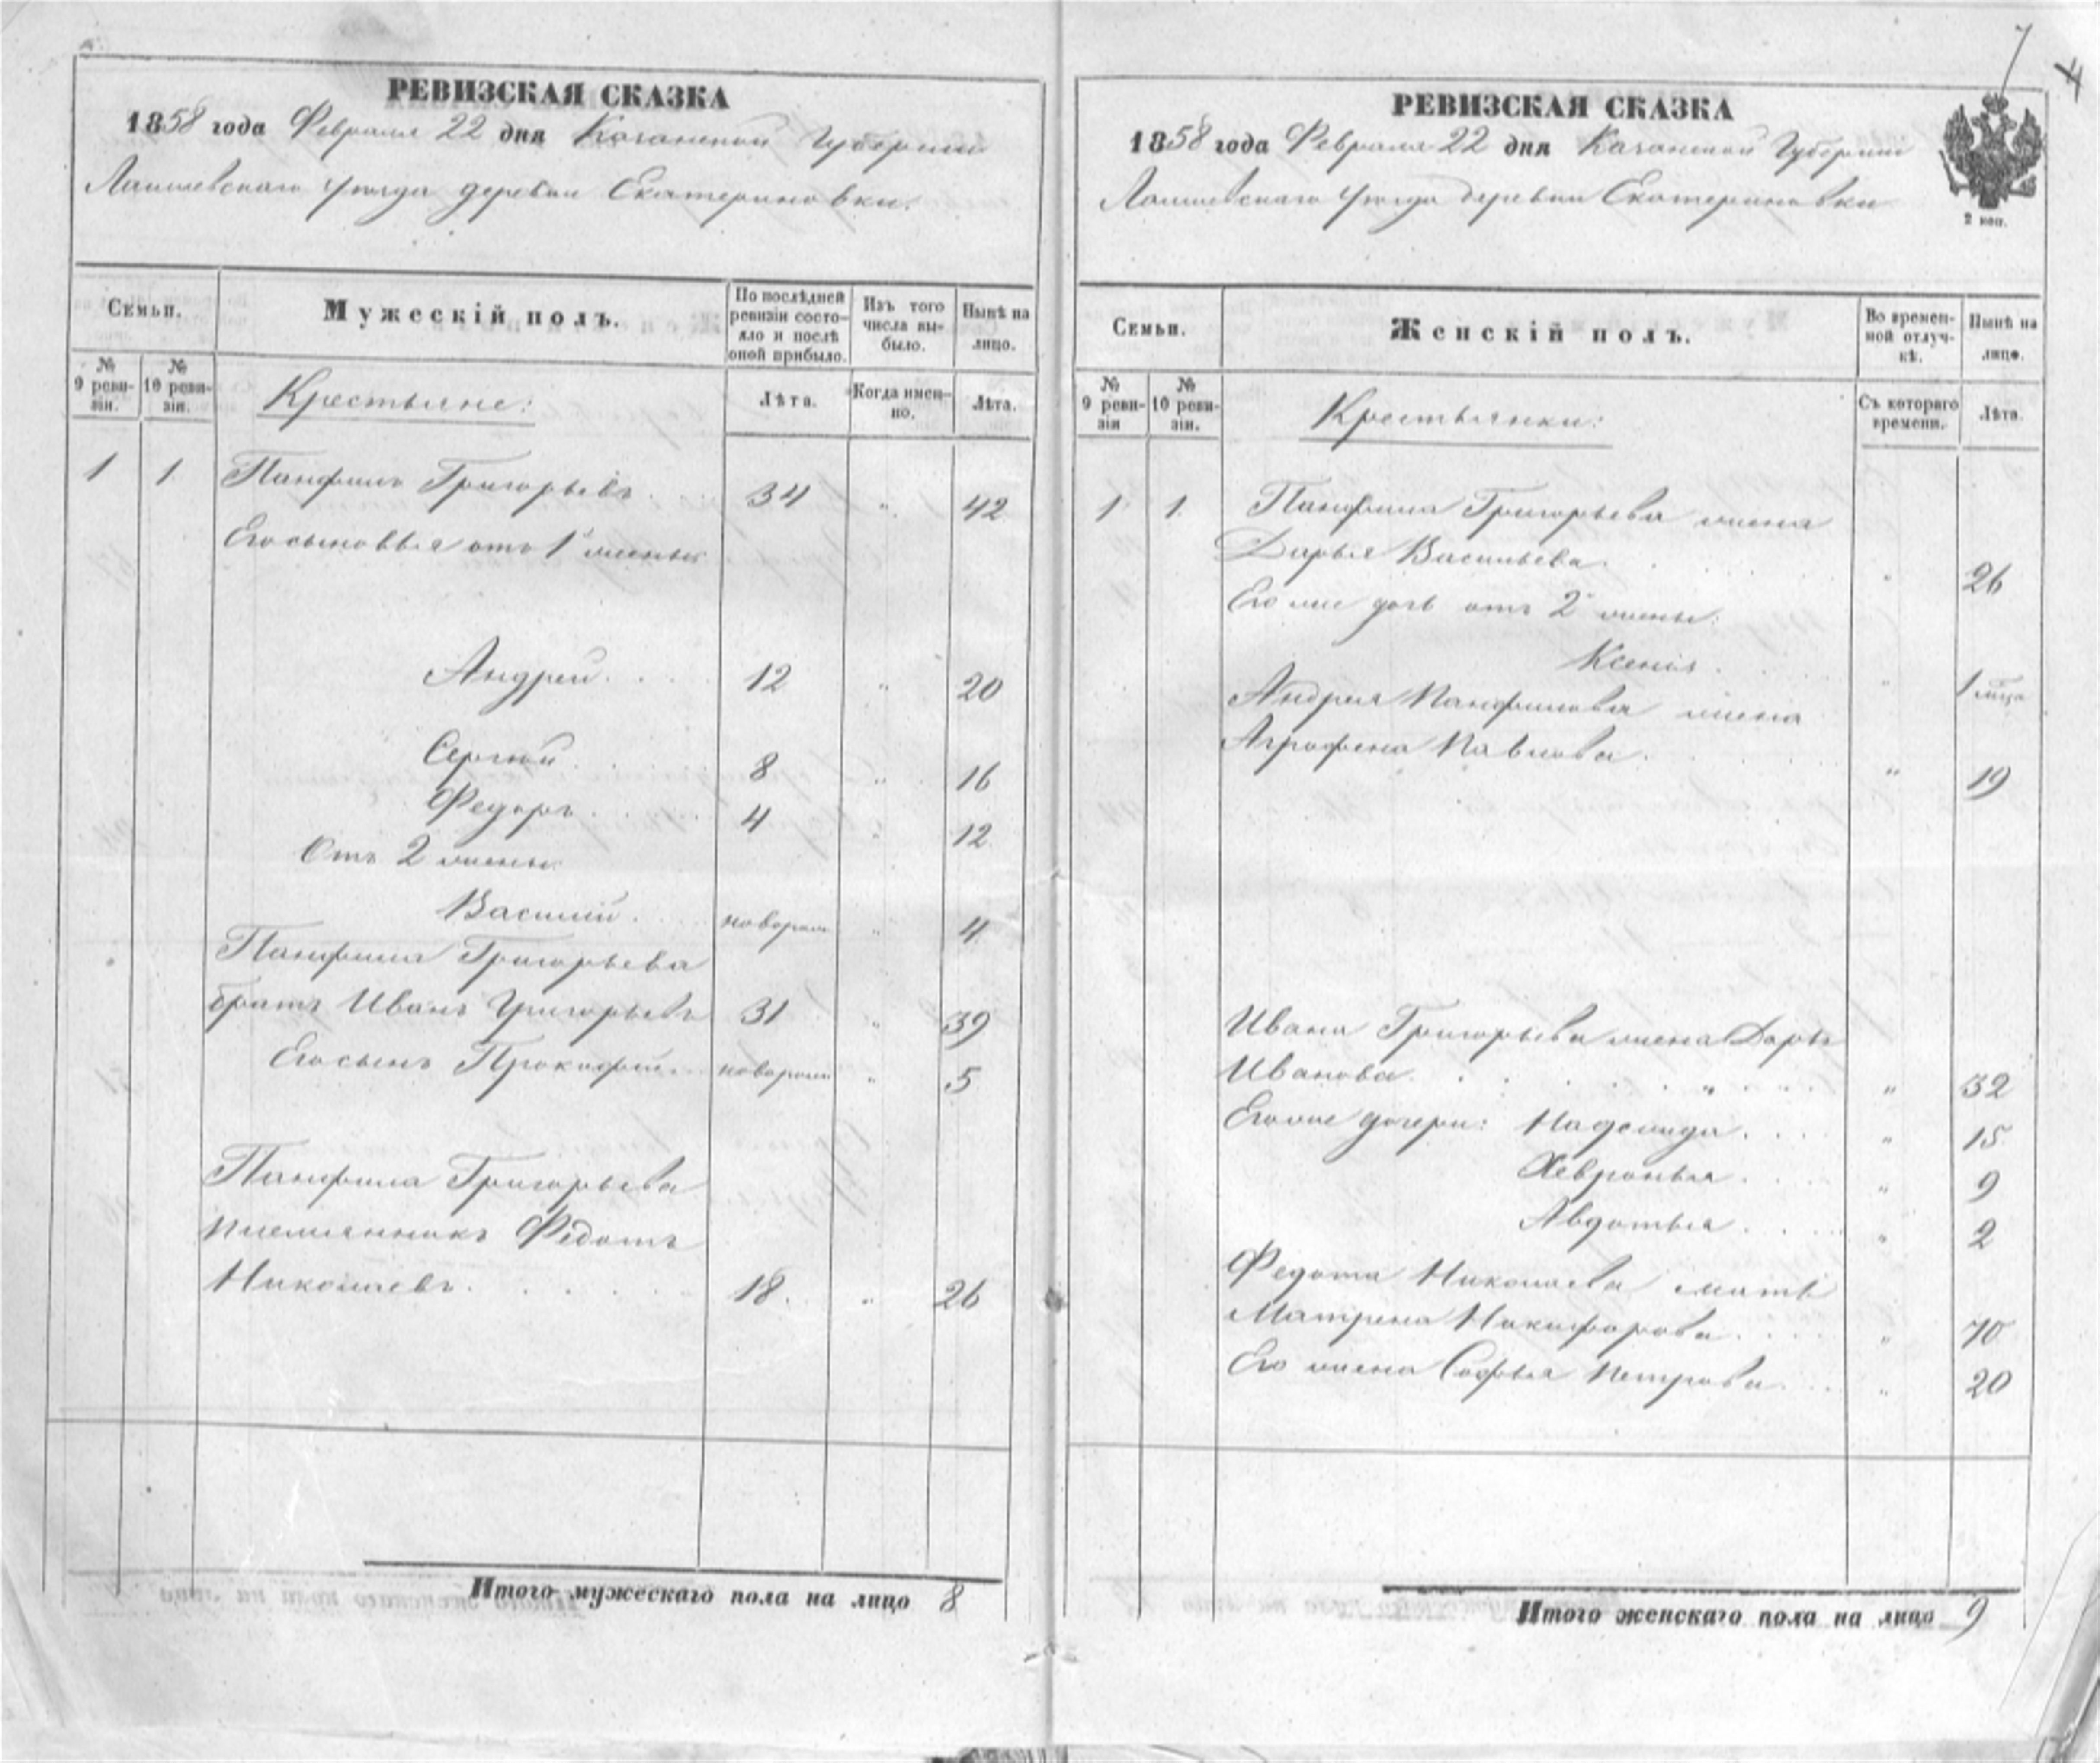 РЕВИЗСКАЯ СКАЗКА
1858 года Февраля 22 дня Казанской Губернии
Лаишевскаго уѣзда деревни Екатериновки.
Семьи.
Мужескій полъ.
По послѣдней ревизіи состояло и послѣ оной прибыло.
Изъ того числа выбыло.
Нынѣ на лицо.
№ 9 ревизіи.
№ 10 ревизіи.
Крестьяне:
Лѣта.
Когда именно.
Лѣта.
1 1 Панфилъ Григорьевъ 34 " 42
Его сыновья отъ 1й жены:
Андрей 12 " 20
Сергѣй 8 " 16
Федоръ 4 " 12
Отъ 2 жены:
Василій новорож " 4
Панфила Григорьева
братъ Иванъ Григорьевъ 31 " 39
Его сынъ Прокофій новорож " 5
Панфила Григорьева
племянникъ Федотъ
Николаевъ 18 " 26
Итого мужескаго пола на лицо 8
7
4
РЕВИЗСКАЯ СКАЗКА
1858 года Февраля 22 дня Казанской Губерніи
Лаишевскаго уѣзда деревни Екатериновки
2 коп.
Семьи.
Женскій полъ.
Во временной отлучкѣ.
Нынѣ на лицо.
№ 9 ревизіи
№ 10 ревизіи.
Крестьянки:
Съ котораго времени.
Лѣта.
1 1 Панфила Григорьева жена
Дарья Васильева " 26
Его же дочь отъ 2й жены:
Ксенія " 1
Андрея Панфилова жена
Аграфена Павлова " 19
Ивана Григорьева жена Дарья
Иванова " 32
Его же дочери: Надежда " 15
Хевронья " 9
Авдотья " 2
Федота Николаева мать
Матрена Никифорова " 70
Его жена Софья Петрова " 20
Итого женскаго пола на лицо 9